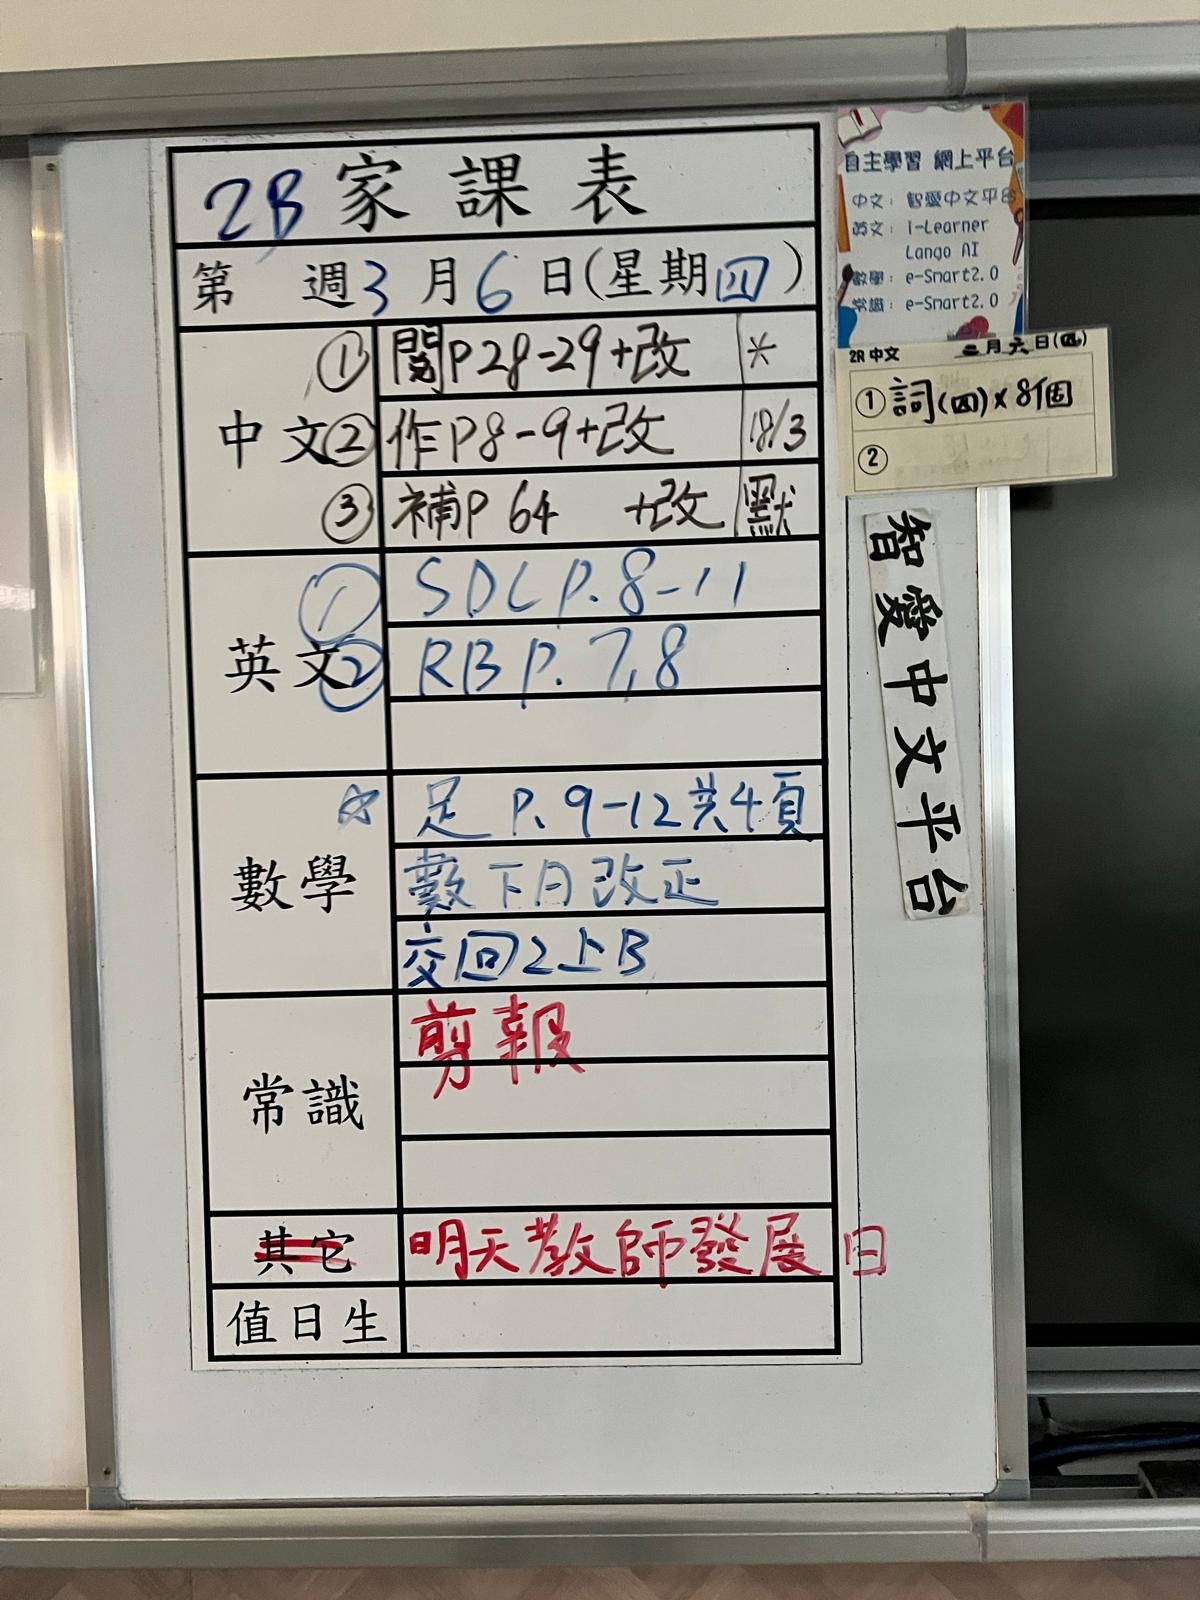 2B 家課表
第 週 3月6日(星期四)
中文
① 閱P28-29+改 *
② 作P8-9+改 18/3
③ 補P 64 +改 默
英文
① SDC P. 8-11
② RB P. 7,8
數學
☆ 足 P. 9-12共4頁
數下A改正
交回2上B
常識
剪報
其它
明天教師發展日
值日生
自主學習 網上平台
中文: 智愛中文平台
英文: i-Learner
Lango AI
數學: e-Smart2.0
常識: e-Smart2.0
中文 三月六日(四)
① 詞(四)×8個
②
智愛中文平台